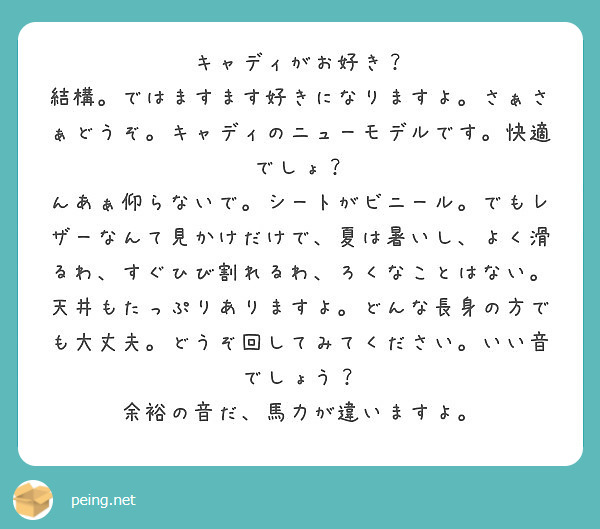 キャディがお好き？
結構。ではますます好きになりますよ。さぁさ
ぁどうぞ。キャディのニューモデルです。快適
でしょ？
んあぁ仰らないで。シートがビニール。でもレ
ザーなんて見かけだけで、夏は暑いし、よく滑
るわ、すぐひび割れるわ、ろくなことはない。
天井もたっぷりありますよ。どんな長身の方で
も大丈夫。どうぞ回してみてください。いい音
でしょう？
余裕の音だ、馬力が違いますよ。
peing.net